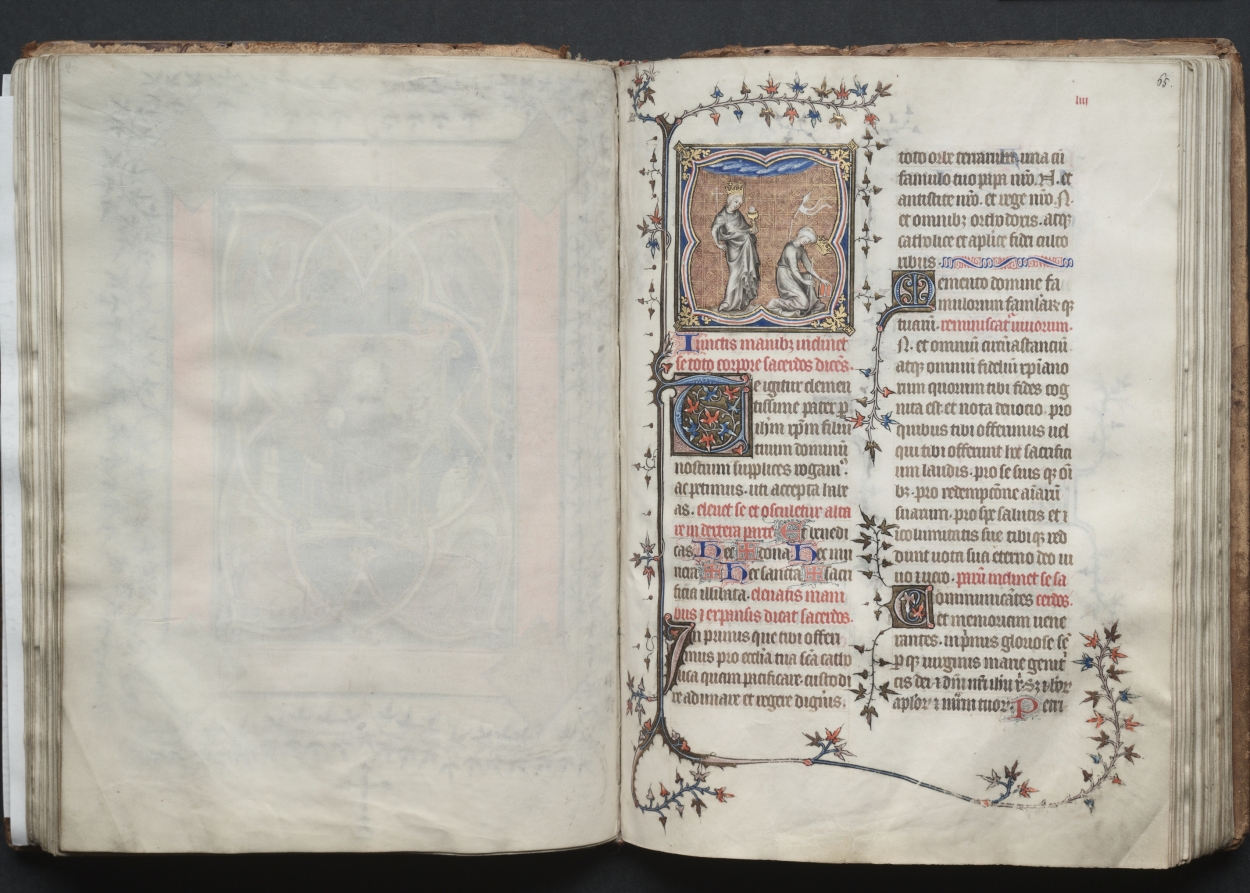 65.
iiii
Iunctis manibꝫ inclinet
se toto corpore sacerdos dicēs.
Te igitur clemen
tissime pater p
ihm xpm filiū
tuum dominū
nostrum supplices rogamꝰ.
ac petimus. uti accepta hab
eas. eleuet se et osculetur alta
re in dextera parte Et benedi
cas Hec ✠ dona Hec mu
nera ✠ Hec sancta ✠ sacri
ficia illibata. eleuatis mani
bus ⁊ expansis dicat sacerdos.
In primis que tibi offeri
mus pro ecclīa tua scā catho
lica quam pacificare. custodi
re adunare et regere digīris.
toto orbe terrarum. una cū
famulo tuo papa nrō. N. et
antistite nrō. et rege nrō. N.
et omnibꝫ ortodoxis. atqꝫ
catholice et aplīce fidei culto
ribus.
Memento domine fa
mulorum famularꝫ qꝫ
tuarū. reminiscat͛ uiuorum.
N. et omniū circūastanciū
atqꝫ omniū fideliū xpīano
rum quorum tibi fides cog
nita est. et nota deuocio. pro
quibus tibi offerimus uel
qui tibi offerunt hoc sacrifici
um laudis. pro se suis qꝫ oī
bꝫ. pro redempcōne aīarū
suarum. pro spe salutis et ī
columitatis sue tibi qꝫ red
dunt uota sua eterno deo ui
uo ⁊ uero. parū inclinet se sa
Communicātes cerdos.
et memoriam uene
rantes. inp̄mis gloriose sē
p qꝫ uirginis marie genit͛
cis dei ⁊ dn̄i nr̄i ihū x̄. Sꝫ ⁊ btor͛
aplor͛ ⁊ mr̄m tuor͛. Petri